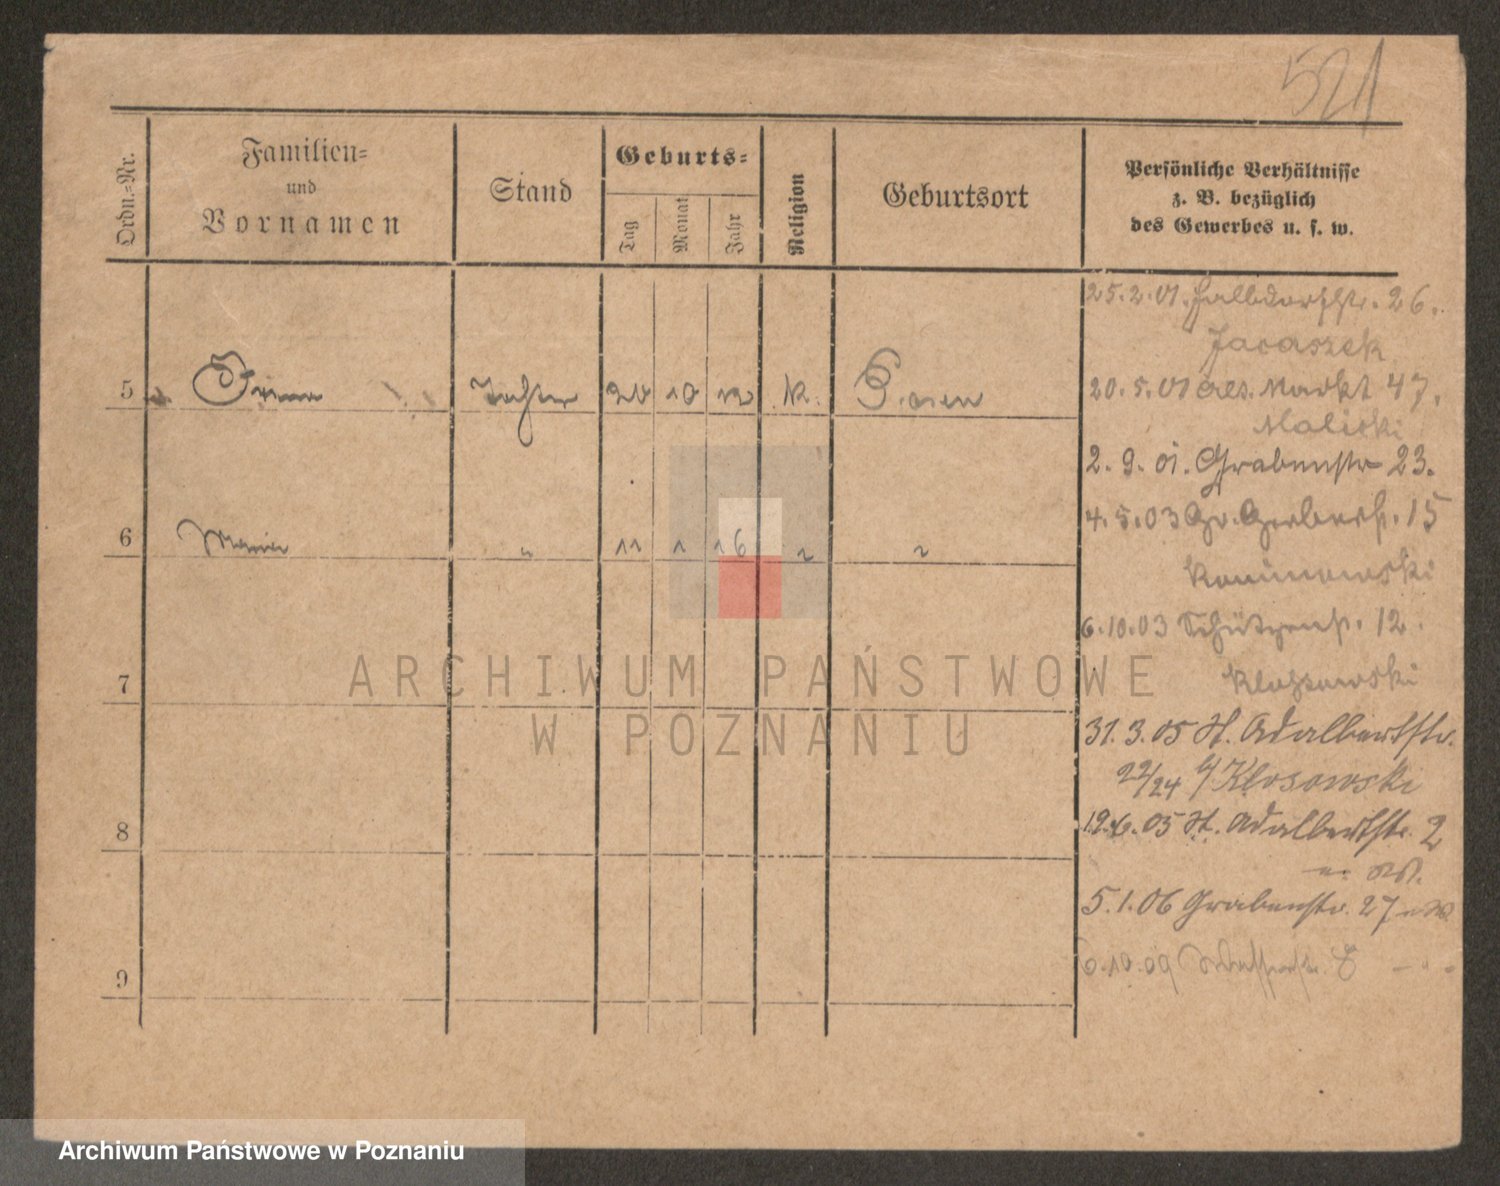 521
Ordn.=Nr.
Familien=
und
Vornamen
Stand
Geburts=
Tag
Monat
Jahr
Religion
Geburtsort
Persönliche Verhältnisse
z. B. bezüglich
des Gewerbes u. s. w.
25.2.01. Halbdorfstr. 26.
Jacaszek
5 Irena Tochter 20 10 12 k. Posen
20.5.01 Markt 47.
Maliski
2.9.01. Grabenstr 23.
4.5.03 Gr. Gerberstr. 15
6 Maria " 11 1 16 " "
6.10.03 Schützenstr. 12.
7
31.3.05 St. Adalbertstr.
22/24 b/ Klosowski
8
19.6.05 St. Adalbertstr. 2
5.1.06 Grabenstr. 27
9
6.10.09 8
ARCHIWUM PAŃSTWOWE
W POZNANIU
Archiwum Państwowe w Poznaniu